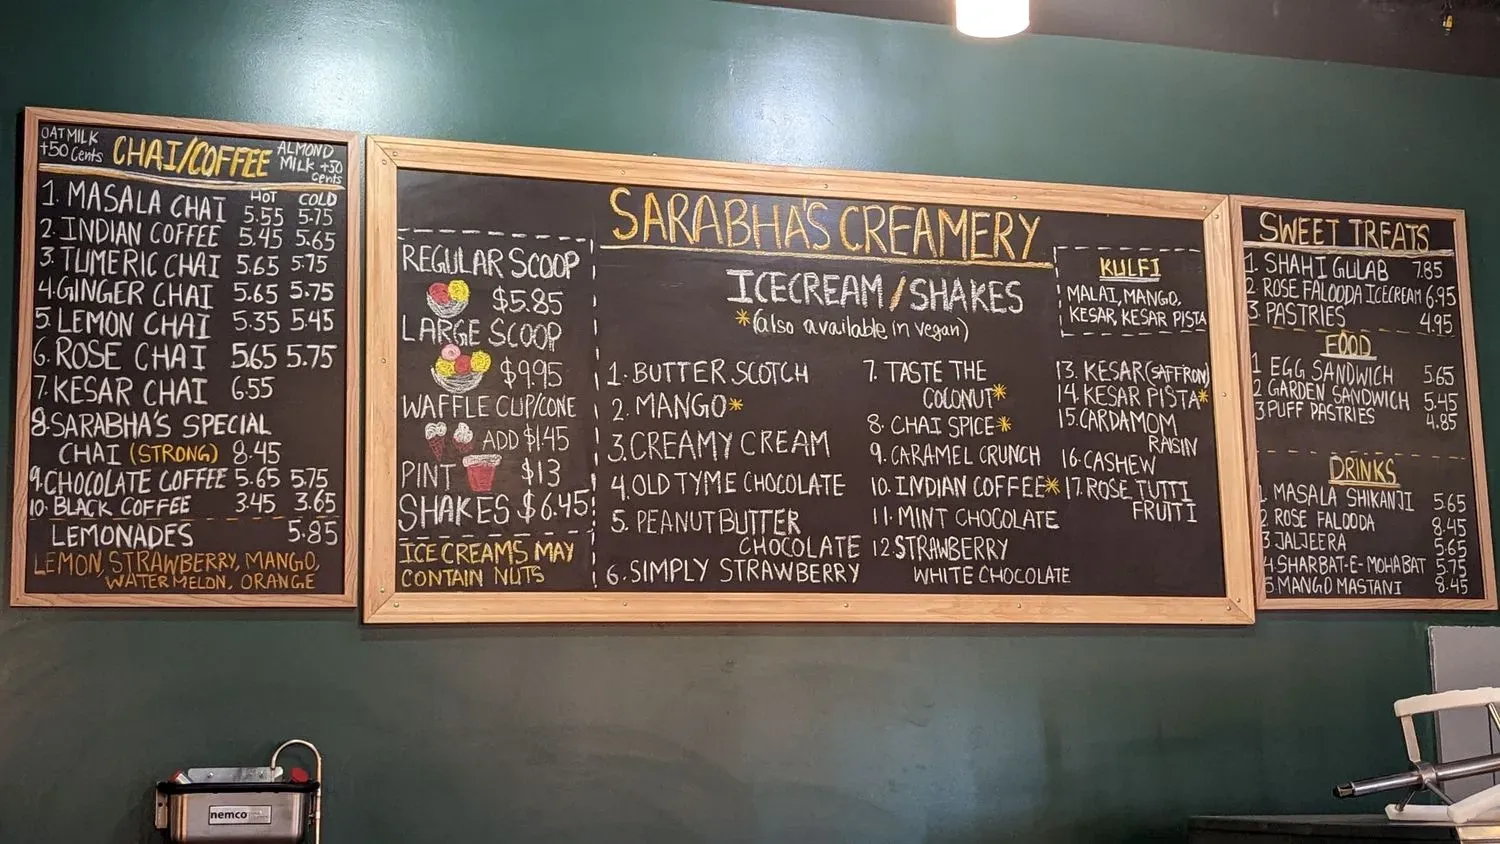 OAT MILK
+50 Cents
CHAI/COFFEE
ALMOND
MILK +50
Cents
HOT COLD
1. MASALA CHAI 5.55 5.75
2. INDIAN COFFEE 5.45 5.65
3. TUMERIC CHAI 5.65 5.75
4. GINGER CHAI 5.65 5.75
5. LEMON CHAI 5.35 5.45
6. ROSE CHAI 5.65 5.75
7. KESAR CHAI 6.55
8. SARABHA'S SPECIAL
CHAI (STRONG) 8.45
9. CHOCOLATE COFFEE 5.65 5.75
10. BLACK COFFEE 3.45 3.65
LEMONADES 5.85
LEMON, STRAWBERRY, MANGO,
WATERMELON, ORANGE
SARABHA'S CREAMERY
REGULAR SCOOP
$5.85
LARGE SCOOP
$9.95
WAFFLE CUP/CONE
ADD $1.45
PINT $13
SHAKES $6.45
ICE CREAMS MAY
CONTAIN NUTS
ICECREAM/SHAKES
*(also available in vegan)
1. BUTTER SCOTCH
2. MANGO*
3. CREAMY CREAM
4. OLD TYME CHOCOLATE
5. PEANUT BUTTER
CHOCOLATE
6. SIMPLY STRAWBERRY
7. TASTE THE
COLONUT*
8. CHAI SPICE*
9. CARAMEL CRUNCH
10. INDIAN COFFEE*
11. MINT CHOCOLATE
12. STRAWBERRY
WHITE CHOCOLATE
KULFI
MALAI, MANGO,
KESAR, KESAR PISTA
13. KESAR (SAFFRON)
14. KESAR PISTA*
15. CARDAMOM
RAISIN
16. CASHEW
17. ROSE TUTTI
FRUITI
SWEET TREATS
1. SHAHI GULAB 7.85
2 ROSE FALOODA ICECREAM 6.95
3. PASTRIES 4.95
FOOD
1 EGG SANDWICH 5.65
2 GARDEN SANDWICH 5.45
3 PUFF PASTRIES 4.85
DRINKS
1. MASALA SHIKANJI 5.65
2 ROSE FALOODA 8.45
3 JALJEERA 5.65
4 SHARBAT-E-MOHABAT 5.75
5. MANGO MASTANI 8.45
nemco